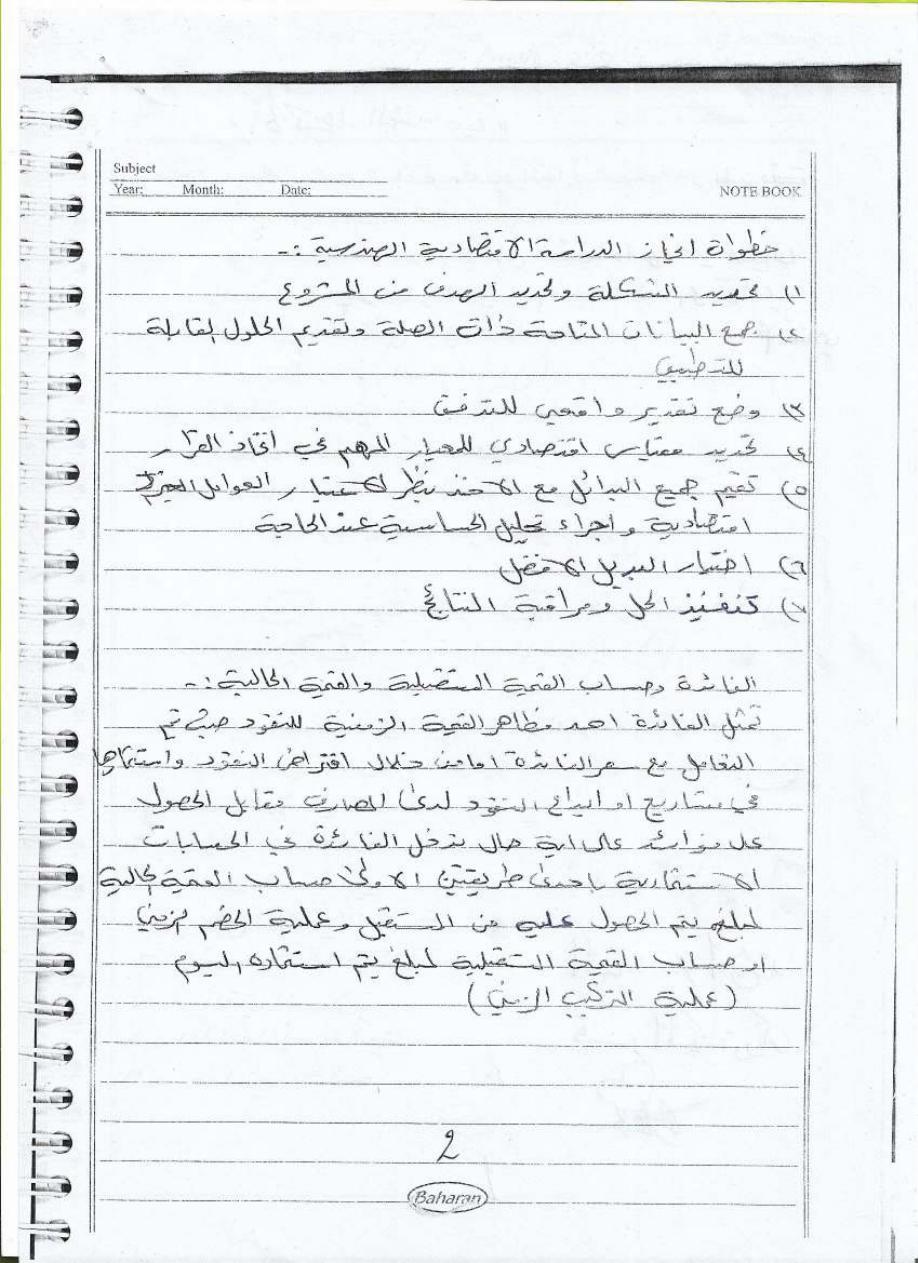 Subject
Year: Month: Date:
NOTE BOOK
خطواة انجاز الدراسة الاقتصادية الهندسية :-
١) تحديد المشكلة وتحديد الهدف من المشروع
٢) جمع البيانات المتاحة ذات الصلة وتقديم الحلول القابلة
للتطبيق
٣) وضع تقدير واقعي للتدفق
٤) تحديد مقياس اقتصادي للمعيار المهم في اتخاذ القرار
٥) تقيم جميع البدائل مع الاخذ بنظر الاعتبار العوامل الغير
اقتصادية واجراء تحليل الحساسية عند الحاجة
٦) اختيار البديل الافضل
٧) تنفيذ الحل ومراقبة النتائج
الفائدة وحساب القيمة المستقبلية والقيمة الحالية :-
تمثل الفائدة احد مظاهر القيمة الزمنية للنقود حيث تم
التعامل مع سعر الفائدة اما من خلال اقتراض النقود واستثمارها
في مشاريع او ايداع النقود لدى المصارف مقابل الحصول
على فوائد على اية حال تدخل الفائدة في الحسابات
الاستثمارية باحدى طريقتين الاولى حساب القيمة الحالية
لمبلغ يتم الحصول عليه من المستقبل وعملية الخصم الزمني
او حساب القيمة المستقبلية لمبلغ يتم استثماره اليوم
(عملية التركيب الزمني)
2
Baharan